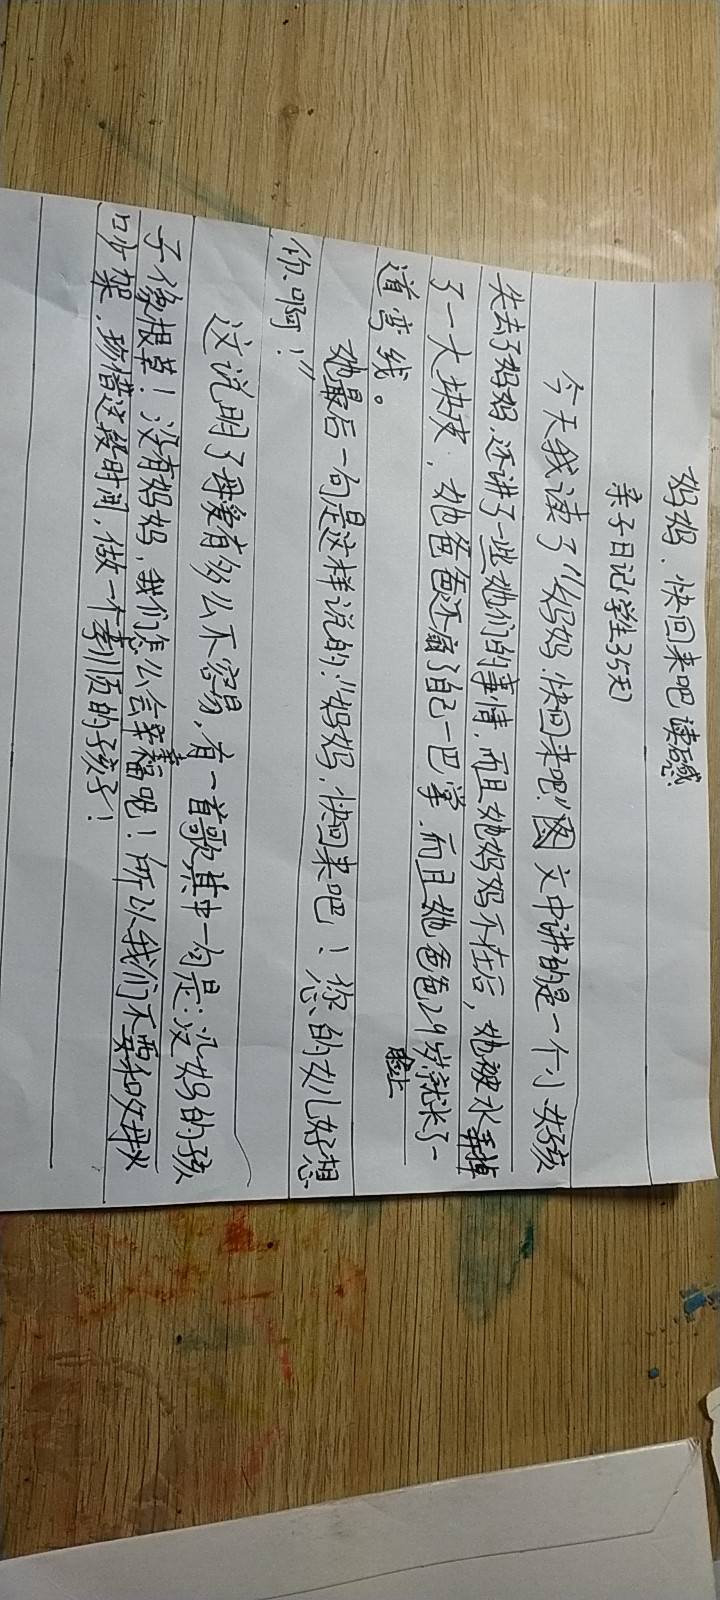 妈妈，快回来吧读后感
亲子日记(学生35天)
今天我读了“妈妈，快回来吧！”图文中讲的是一个小女孩
失去了妈妈，还讲了一些她们的事情，而且她妈妈不在后，她被水弄掉
了一大块皮，她爸爸还扇了自己一巴掌，而且她爸爸29岁脸上就长了一
道弯线。
她最后一句是这样说的：“妈妈，快回来吧！您的女儿好想
你啊！”
这说明了母爱有多么不容易，有一首歌其中一句是：没妈的孩
子像根草！没有妈妈，我们怎么会幸福呢！所以我们不要和父母
吵架，珍惜这段时间，做一个孝顺的孩子！